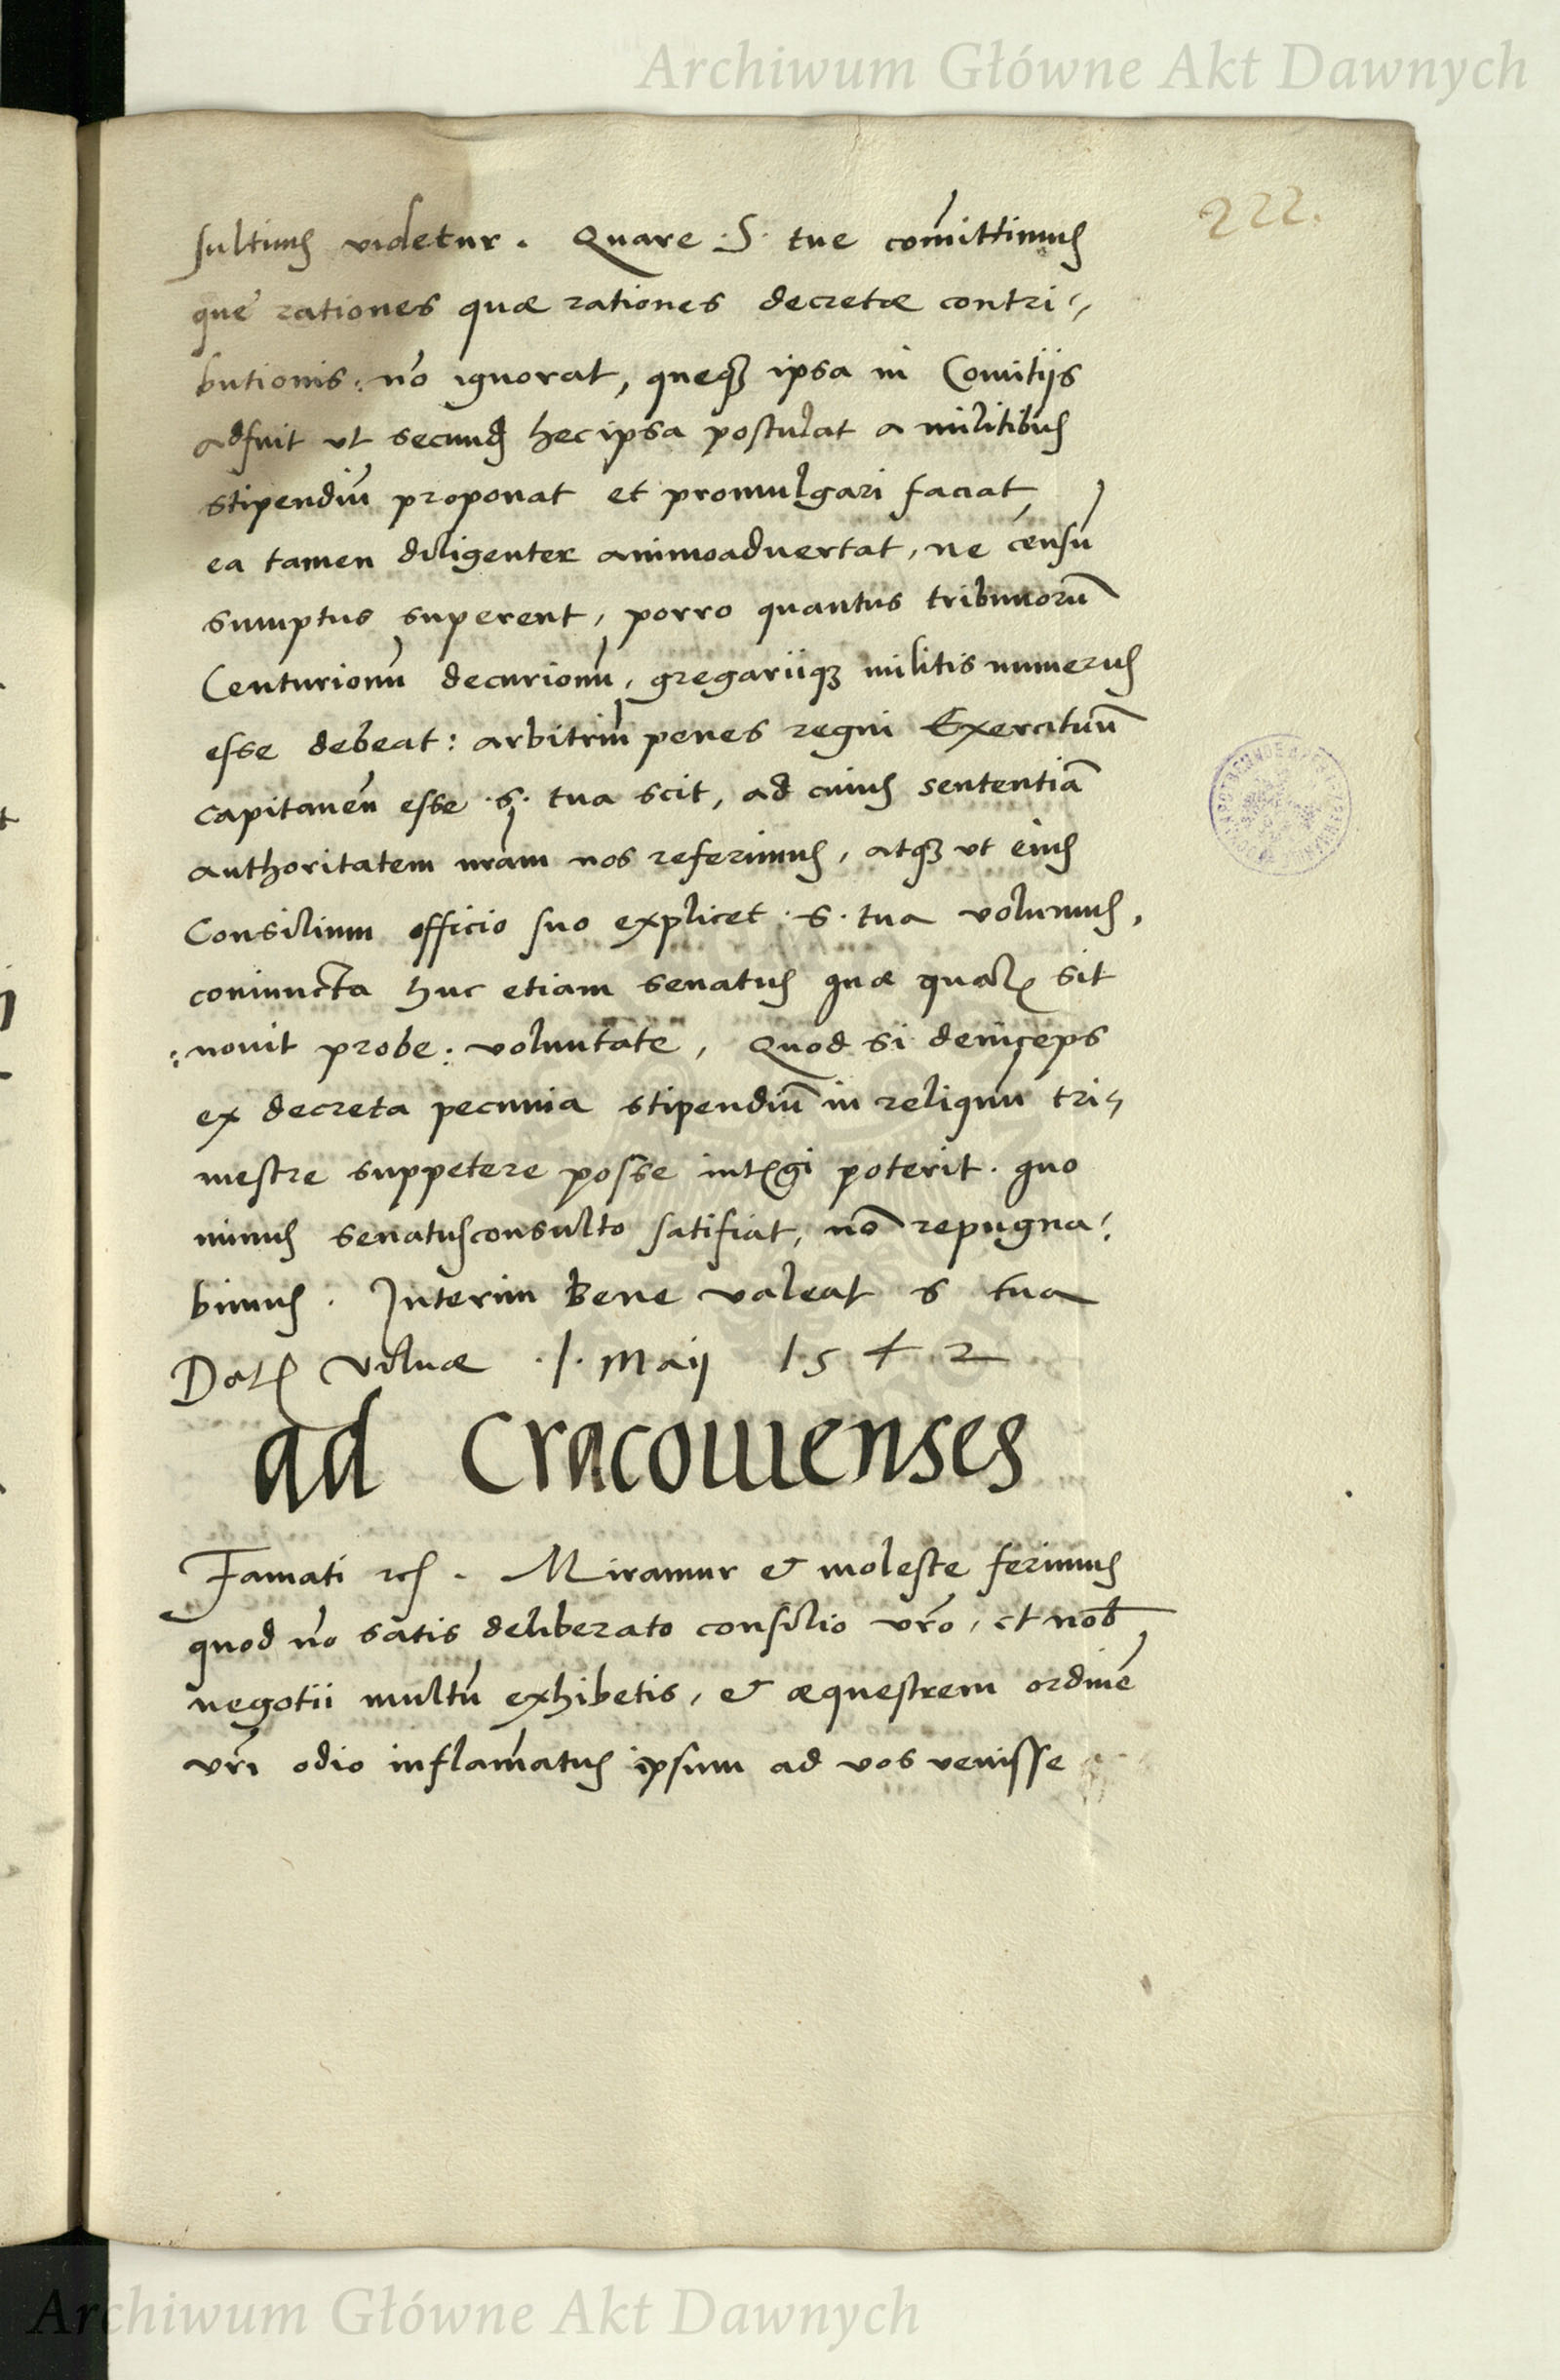 Archiwum Główne Akt Dawnych
222.
sultius videtur. Quare .S. tue com̄ittimus
que rationes quæ rationes decretæ contri-
butionis: nō ignorat, queq; ipsa in Comitijs
adfuit ut secund hec ipsa postulat a militibus
stipendiū proponat et promulgari faciat,
ea tamen diligenter animoadvertat, ne censū
sumptus superent, porro quantus tribunorū
Centurionū decurionū, gregariiq; militis numerus
esse debeat: arbitriū penes regni Exercituū
capitaneū esse .S. tua scit, ad cuius sententiā
authoritatem nr̄am nos referimus, atq; ut eius
Consilium officio suo explicet .S. tua volumus,
coniuncta huc etiam senatus quæ qual sit
:novit probe: voluntate, Quod si deinceps
ex decreta pecunia stipendiū in reliquū tri-
mestre suppetere posse intel̄gi poterit. quo
minus senatusconsulto satifiat, nō repugna-
bimus. Interim bene valeat S tua
Dat Vilnæ .1. Maij 1542
ad Cracouienses
Famati rc̄. Miramur & moleste ferimus
quod nō satis deliberato consilio vr̄o, et nob̄
negotii multū exhibetis, & æquestrem ordinē
vr̄i odio inflam̄atus ipsum ad vos venisse
Archiwum Główne Akt Dawnych